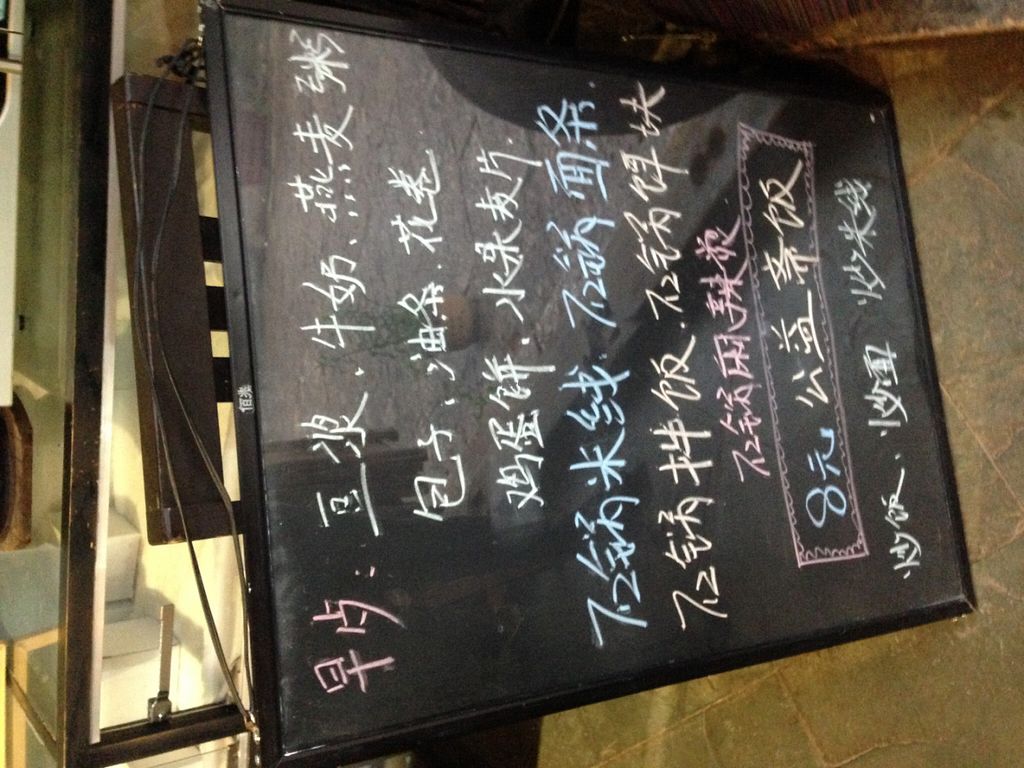 早点: 豆浆、牛奶、燕麦粥
包子、油条、花卷
鸡蛋饼、水果麦片.
石锅米线. 石锅面条.
石锅拌饭. 石锅饵块
石锅麻辣烫
8元 公益斋饭
炒饭、炒面 炒米线
佰彩